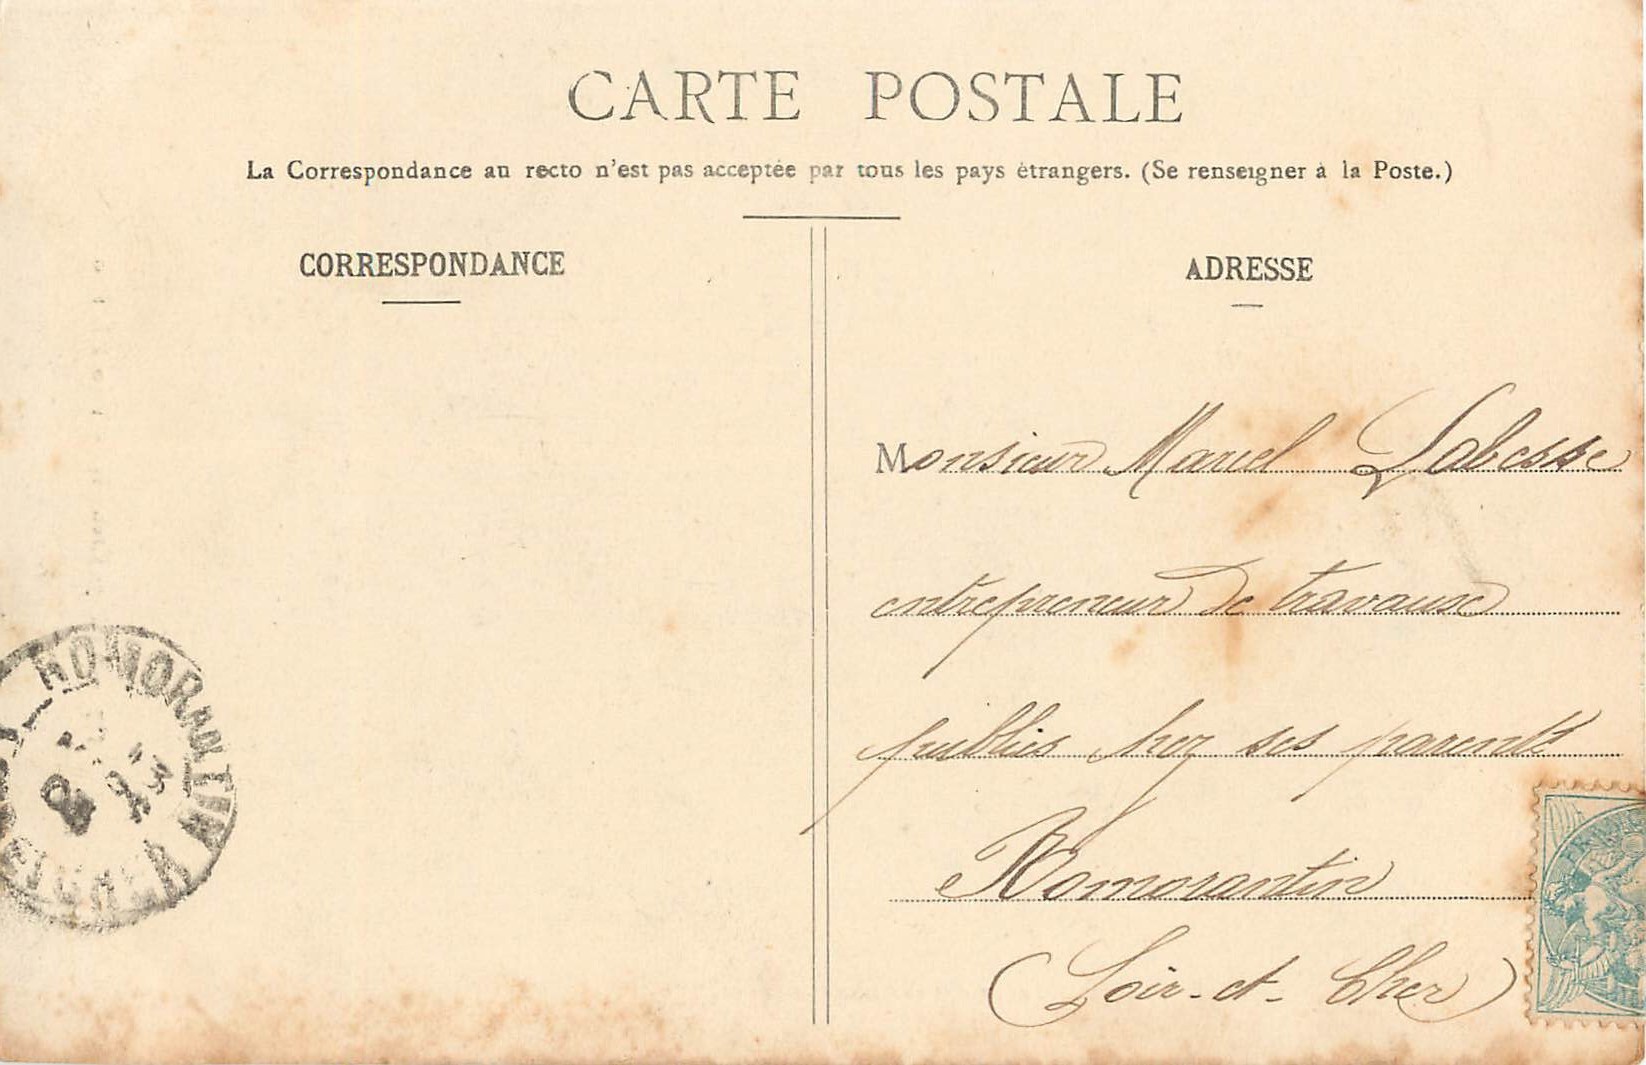 CARTE POSTALE
La Correspondance au recto n'est pas acceptée par tous les pays étrangers. (Se renseigner à la Poste.)
CORRESPONDANCE
ADRESSE
Monsieur Marcel Labesse
entrepreneur de travaux
publics chez ses parents
Romorantin
(Loir-et-Cher)
ROMORANTIN